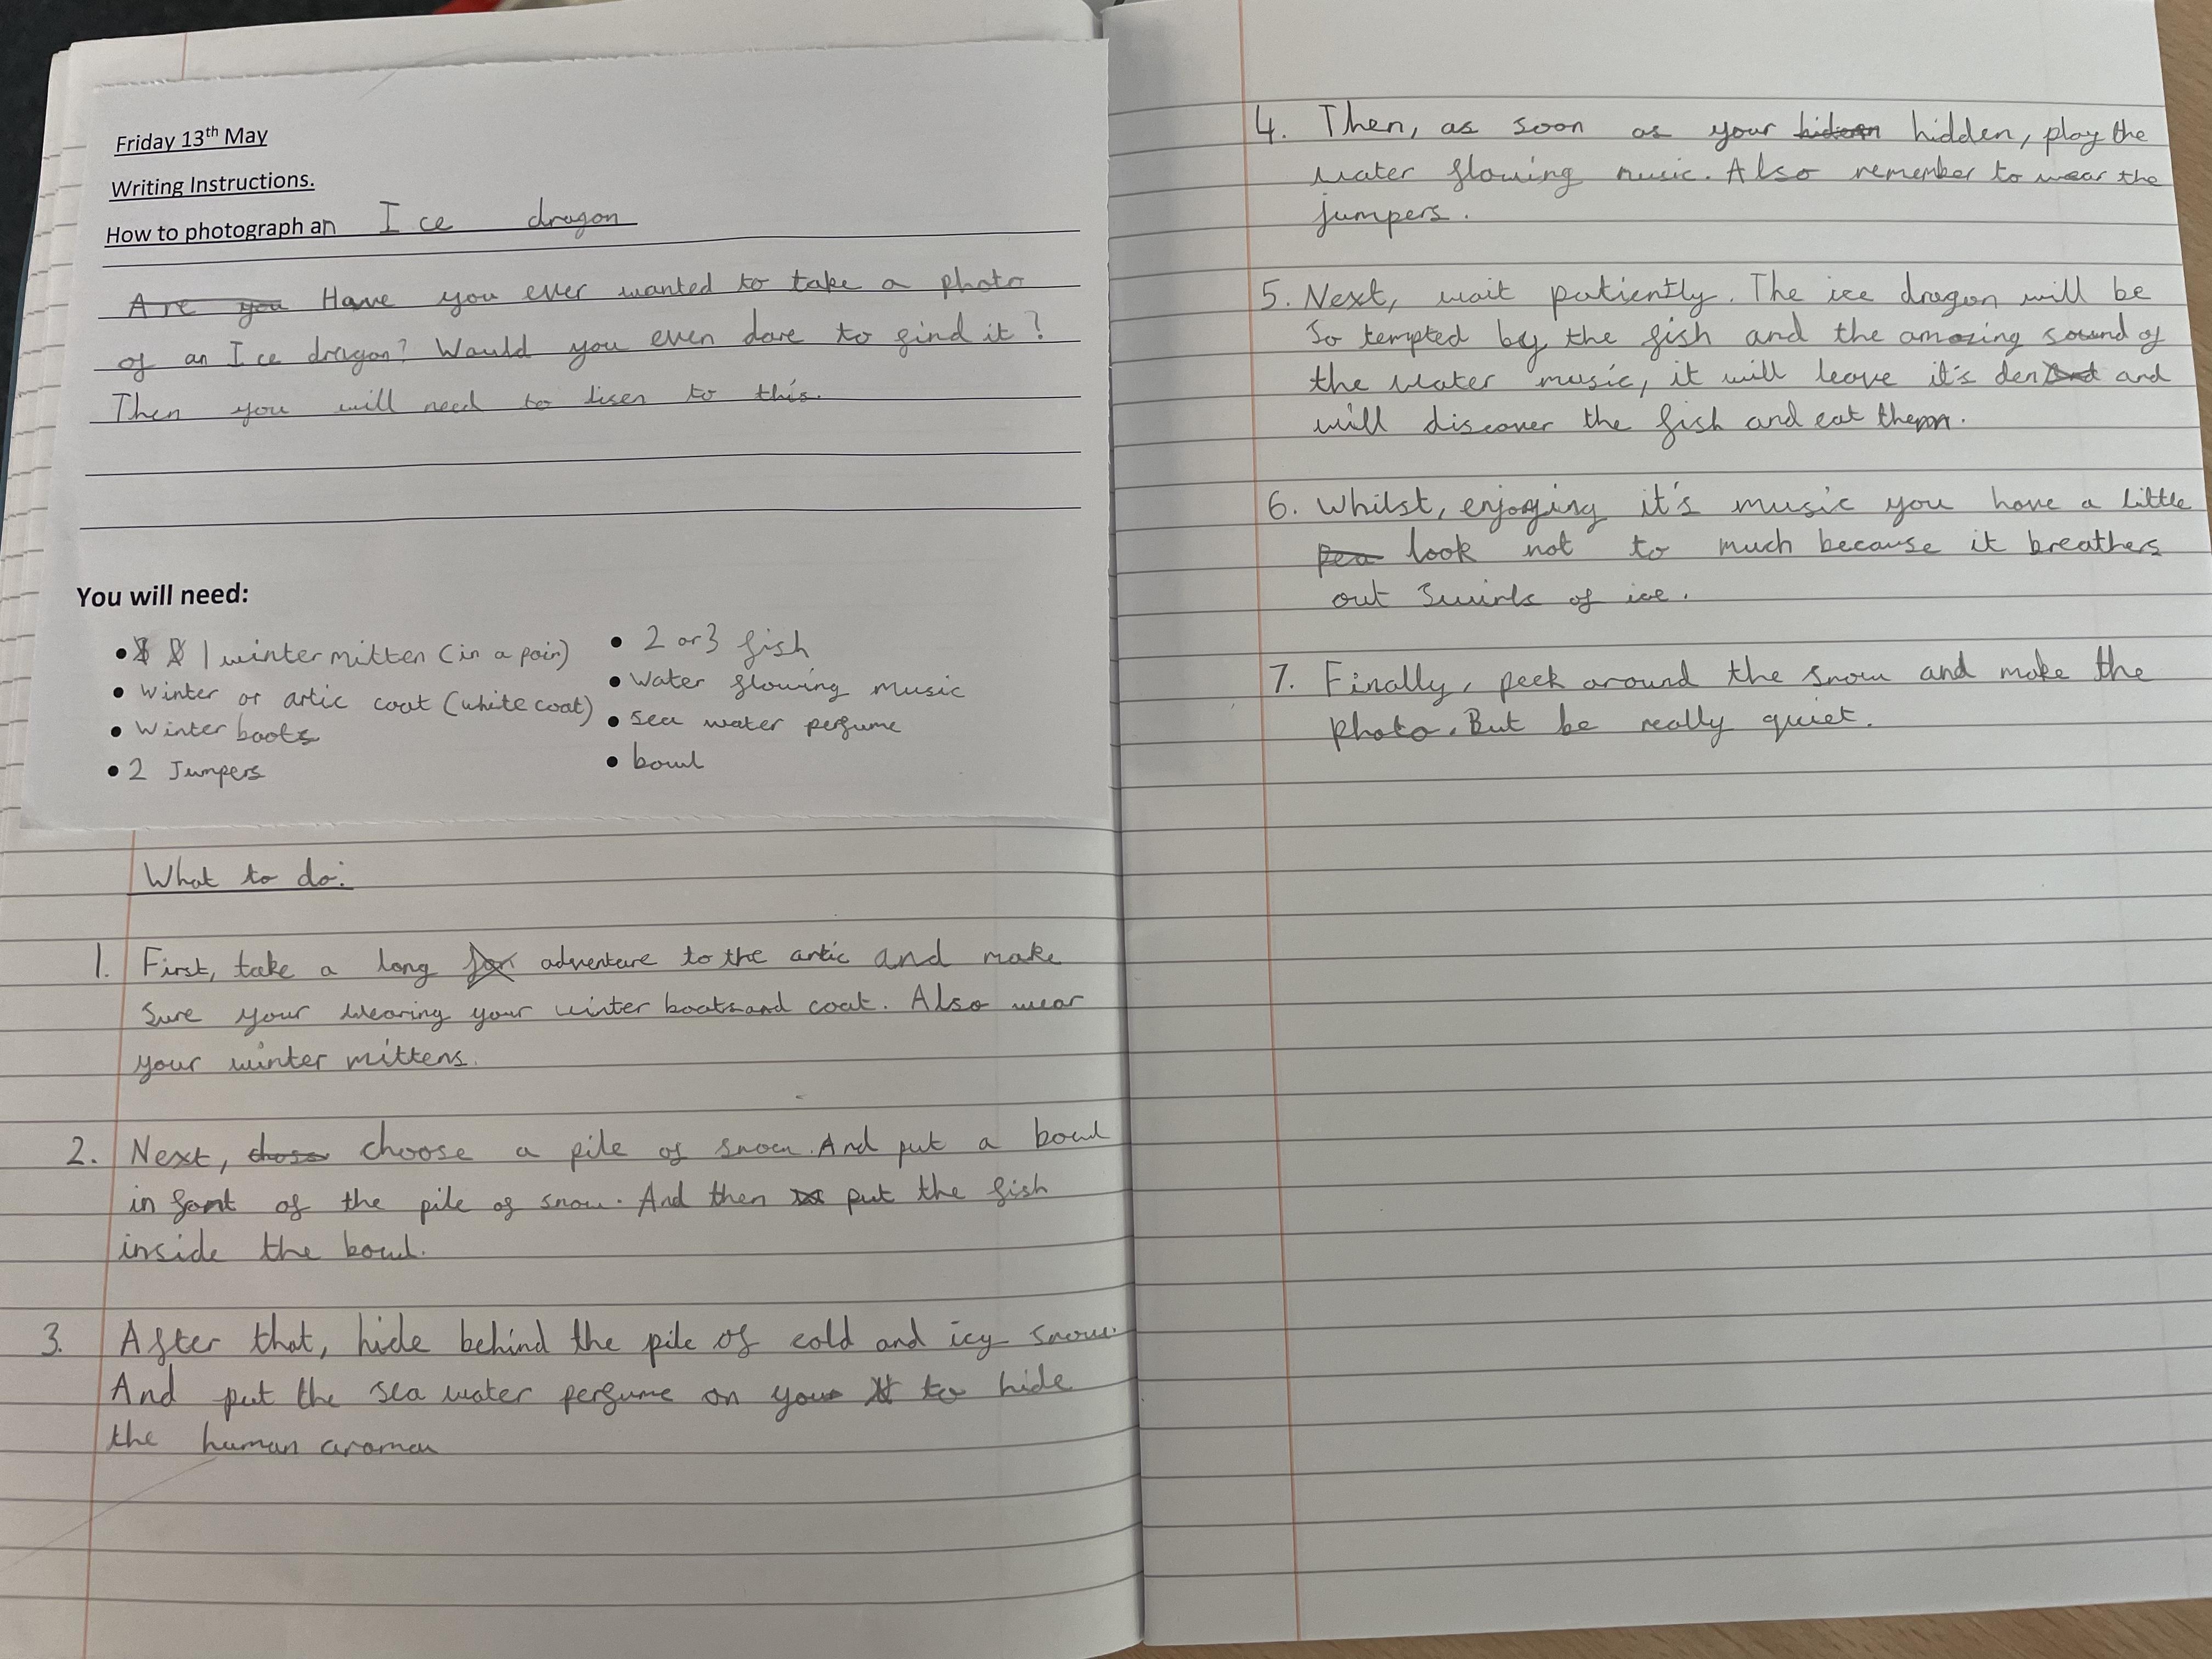 Friday 13th May
Writing Instructions.
How to photograph an Ice dragon
Are you Have you ever wanted to take a photo
of an Ice dragon? Would you even dare to find it?
Then you will need to lisen to this.
You will need:
• 1 winter mitten (in a pair)
• winter or artic coat (white coat)
• winter boots
• 2 Jumpers
• 2 or 3 fish
• water flowing music
• sea water perfume
• bowl
What to do:
1. First, take a long adventure to the artic and make
sure your wearing your winter boots and coat. Also wear
your winter mittens.
2. Next, choose a pile of snow. And put a bowl
in font of the pile of snow. And then put the fish
inside the bowl.
3. After that, hide behind the pile of cold and icy snow.
And put the sea water perfume on you to hide
the human aroma
4. Then, as soon as your hidden, play the
water flowing music. Also remember to wear the
jumpers.
5. Next, wait patiently. The ice dragon will be
so tempted by the fish and the amazing sound of
the water music, it will leave it's den and
will discover the fish and eat them.
6. Whilst, enjoying it's music you have a little
look not to much because it breathers
out swirls of ice.
7. Finally, peek around the snow and make the
photo. But be really quiet.